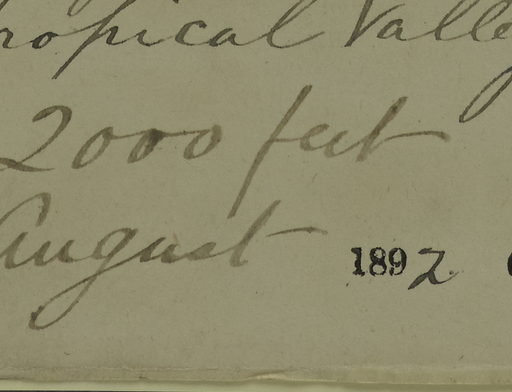 Tropical Valley
2000 feet
August 1892